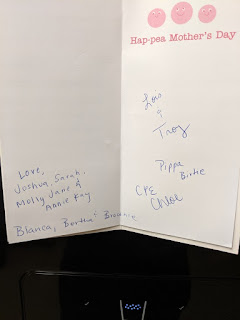 Hap-pea Mother's Day
Love,
Joshua, Sarah,
Molly Jane &
Annie Kay
Blanca, Bertha & Brownie
Lois
&
Troy
Pippa
Birdie
CPE
Chloe